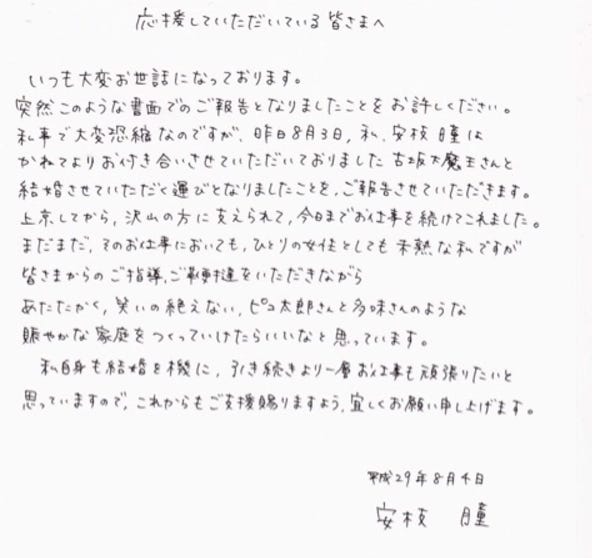 応援していただいている皆さまへ
いつも大変お世話になっております。
突然このような書面でのご報告となりましたことをお許しください。
私事で大変恐縮なのですが、昨日8月3日、私、安枝瞳は
かねてよりお付き合いさせていただいておりました古坂大魔王さんと
結婚させていただく運びとなりましたことを、ご報告させていただきます。
上京してから、沢山の方に支えられて、今日までお仕事を続けてこれました。
まだまだ、そのお仕事においても、ひとりの女性としても未熟な私ですが
皆さまからのご指導、ご鞭撻をいただきながら
あたたかく、笑いの絶えない、ピコ太郎さんと多味さんのような
賑やかな家庭をつくっていけたらいいなと思っています。
私自身も結婚を機に、引き続きより一層お仕事も頑張りたいと
思っていますので、これからもご支援賜りますよう、宜しくお願い申し上げます。
平成29年8月4日
安枝 瞳